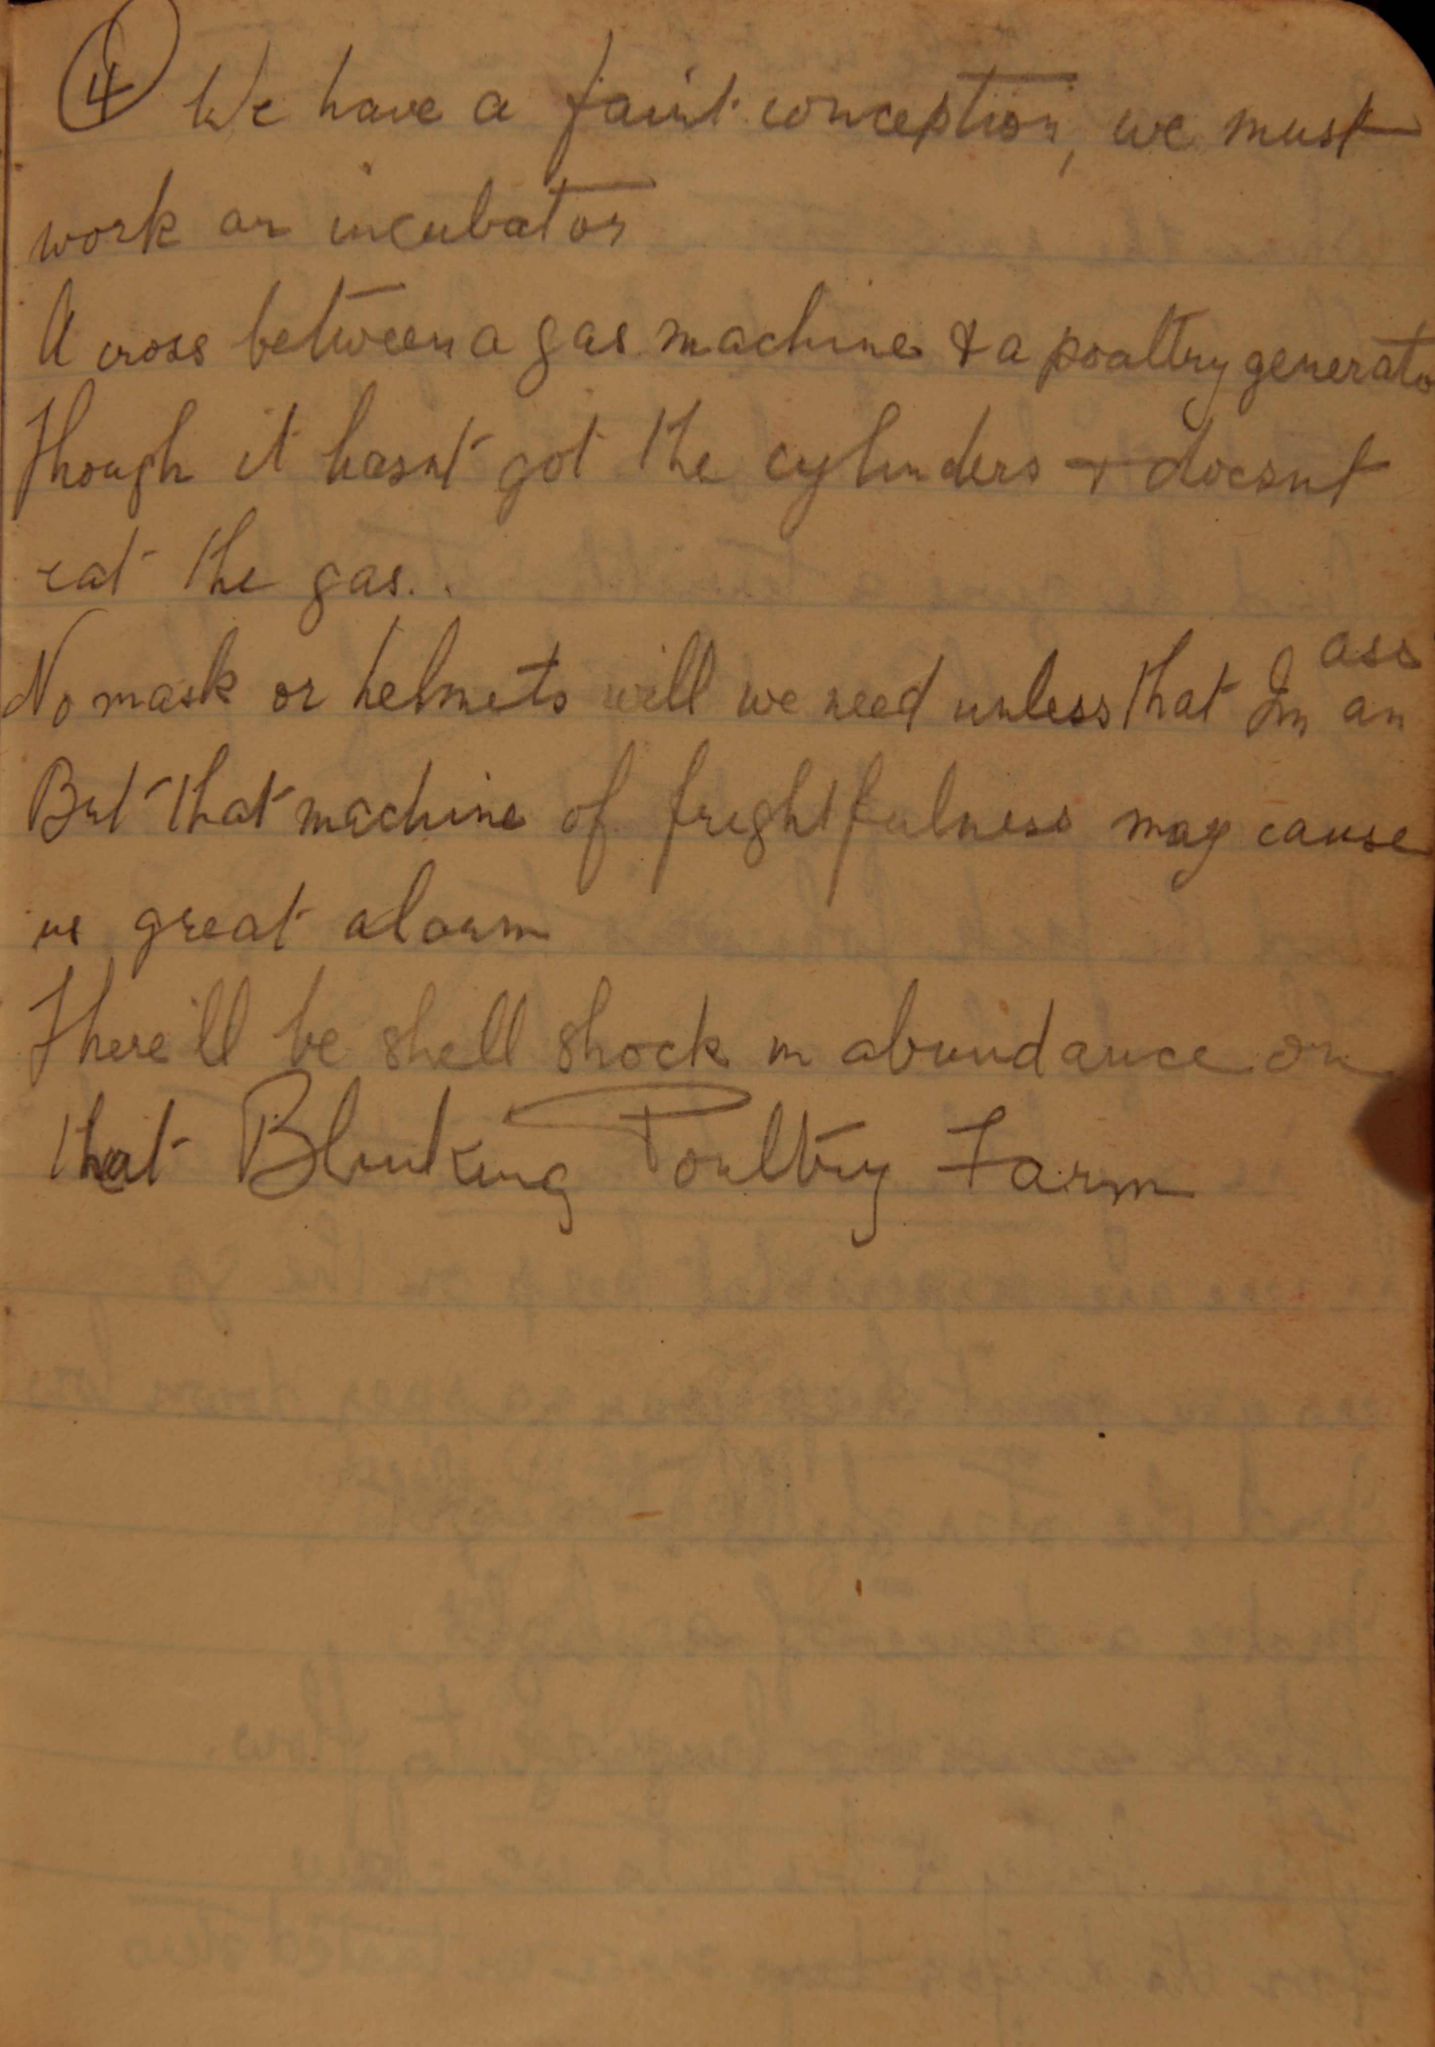 4 We have a faint conception, we must
work an incubator
A cross between a gas machine & a poaltry generato
Though it hasnt got the cylinders & doesnt
eat the gas..
No mask or helmets will we need unless that Im an ass
But that machine of frightfulness may cause
us great alarm
There'll be shell shock in abundance on
that Blinking Poultry Farm